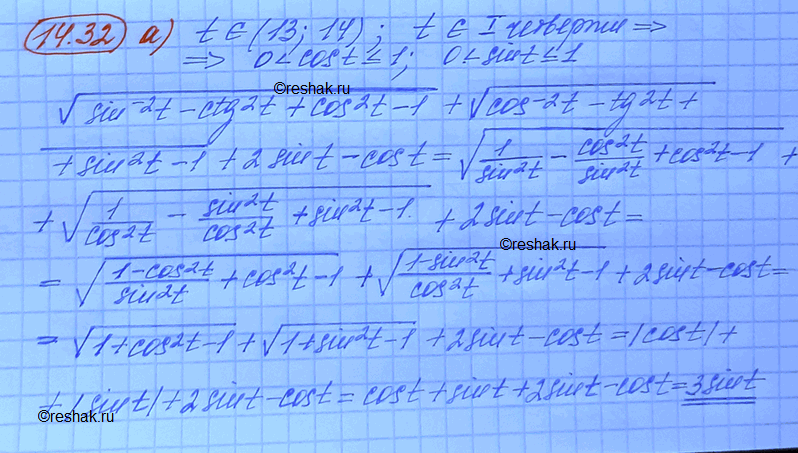 14.32 а) t ∈ (13; 14); t ∈ I четверти ⇒
⇒ 0 < cos t ≤ 1; 0 < sin t ≤ 1
©reshak.ru
√(sin⁻²t − ctg²t + cos²t − 1) + √(cos⁻²t − tg²t +
+ sin²t − 1) + 2 sin t − cos t = √(1/sin²t − cos²t/sin²t + cos²t − 1) +
+ √(1/cos²t − sin²t/cos²t + sin²t − 1) + 2 sin t − cos t =
©reshak.ru
= √((1−cos²t)/sin²t + cos²t − 1) + √((1−sin²t)/cos²t + sin²t − 1) + 2 sin t − cos t =
= √(1 + cos²t − 1) + √(1 + sin²t − 1) + 2 sin t − cos t = |cos t| +
+ |sin t| + 2 sin t − cos t = cos t + sin t + 2 sin t − cos t = 3 sin t
©reshak.ru